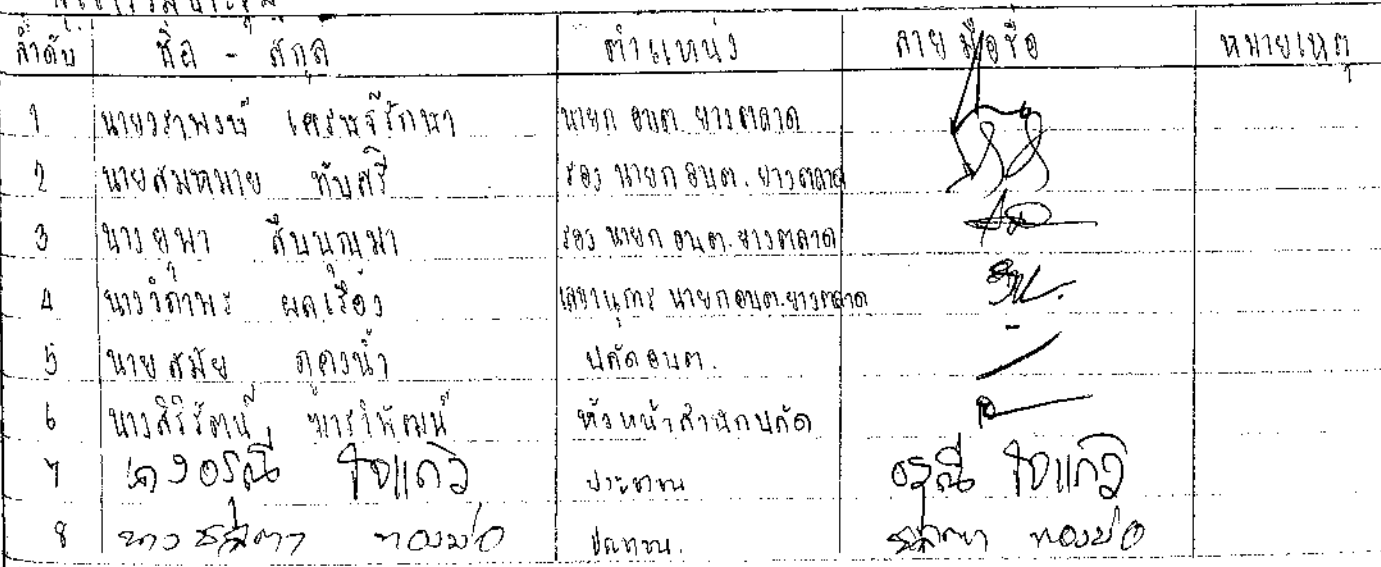 ผู้เข้าร่วมประชุม
ลำดับ ชื่อ - สกุล ตำแหน่ง ลายมือชื่อ หมายเหตุ
1 นายวราพงษ์ เศรษฐีรักษา นายก อบต. ยางตลาด
2 นายสมหมาย ทับศรี รอง นายก อบต. ยางตลาด
3 นางยุพา สืบบุญมา รอง นายก อบต. ยางตลาด
4 นางวิภาพร ผลเรือง เลขานุการ นายก อบต. ยางตลาด
5 นายสมัย ภูคงน้ำ ปลัด อบต.
6 นางสิริรัตน์ หัวหน้าสำนักปลัด
7 นางอรุณี ใจแก้ว ประชาชน อรุณี ใจแก้ว
8 นาง ประชาชน.